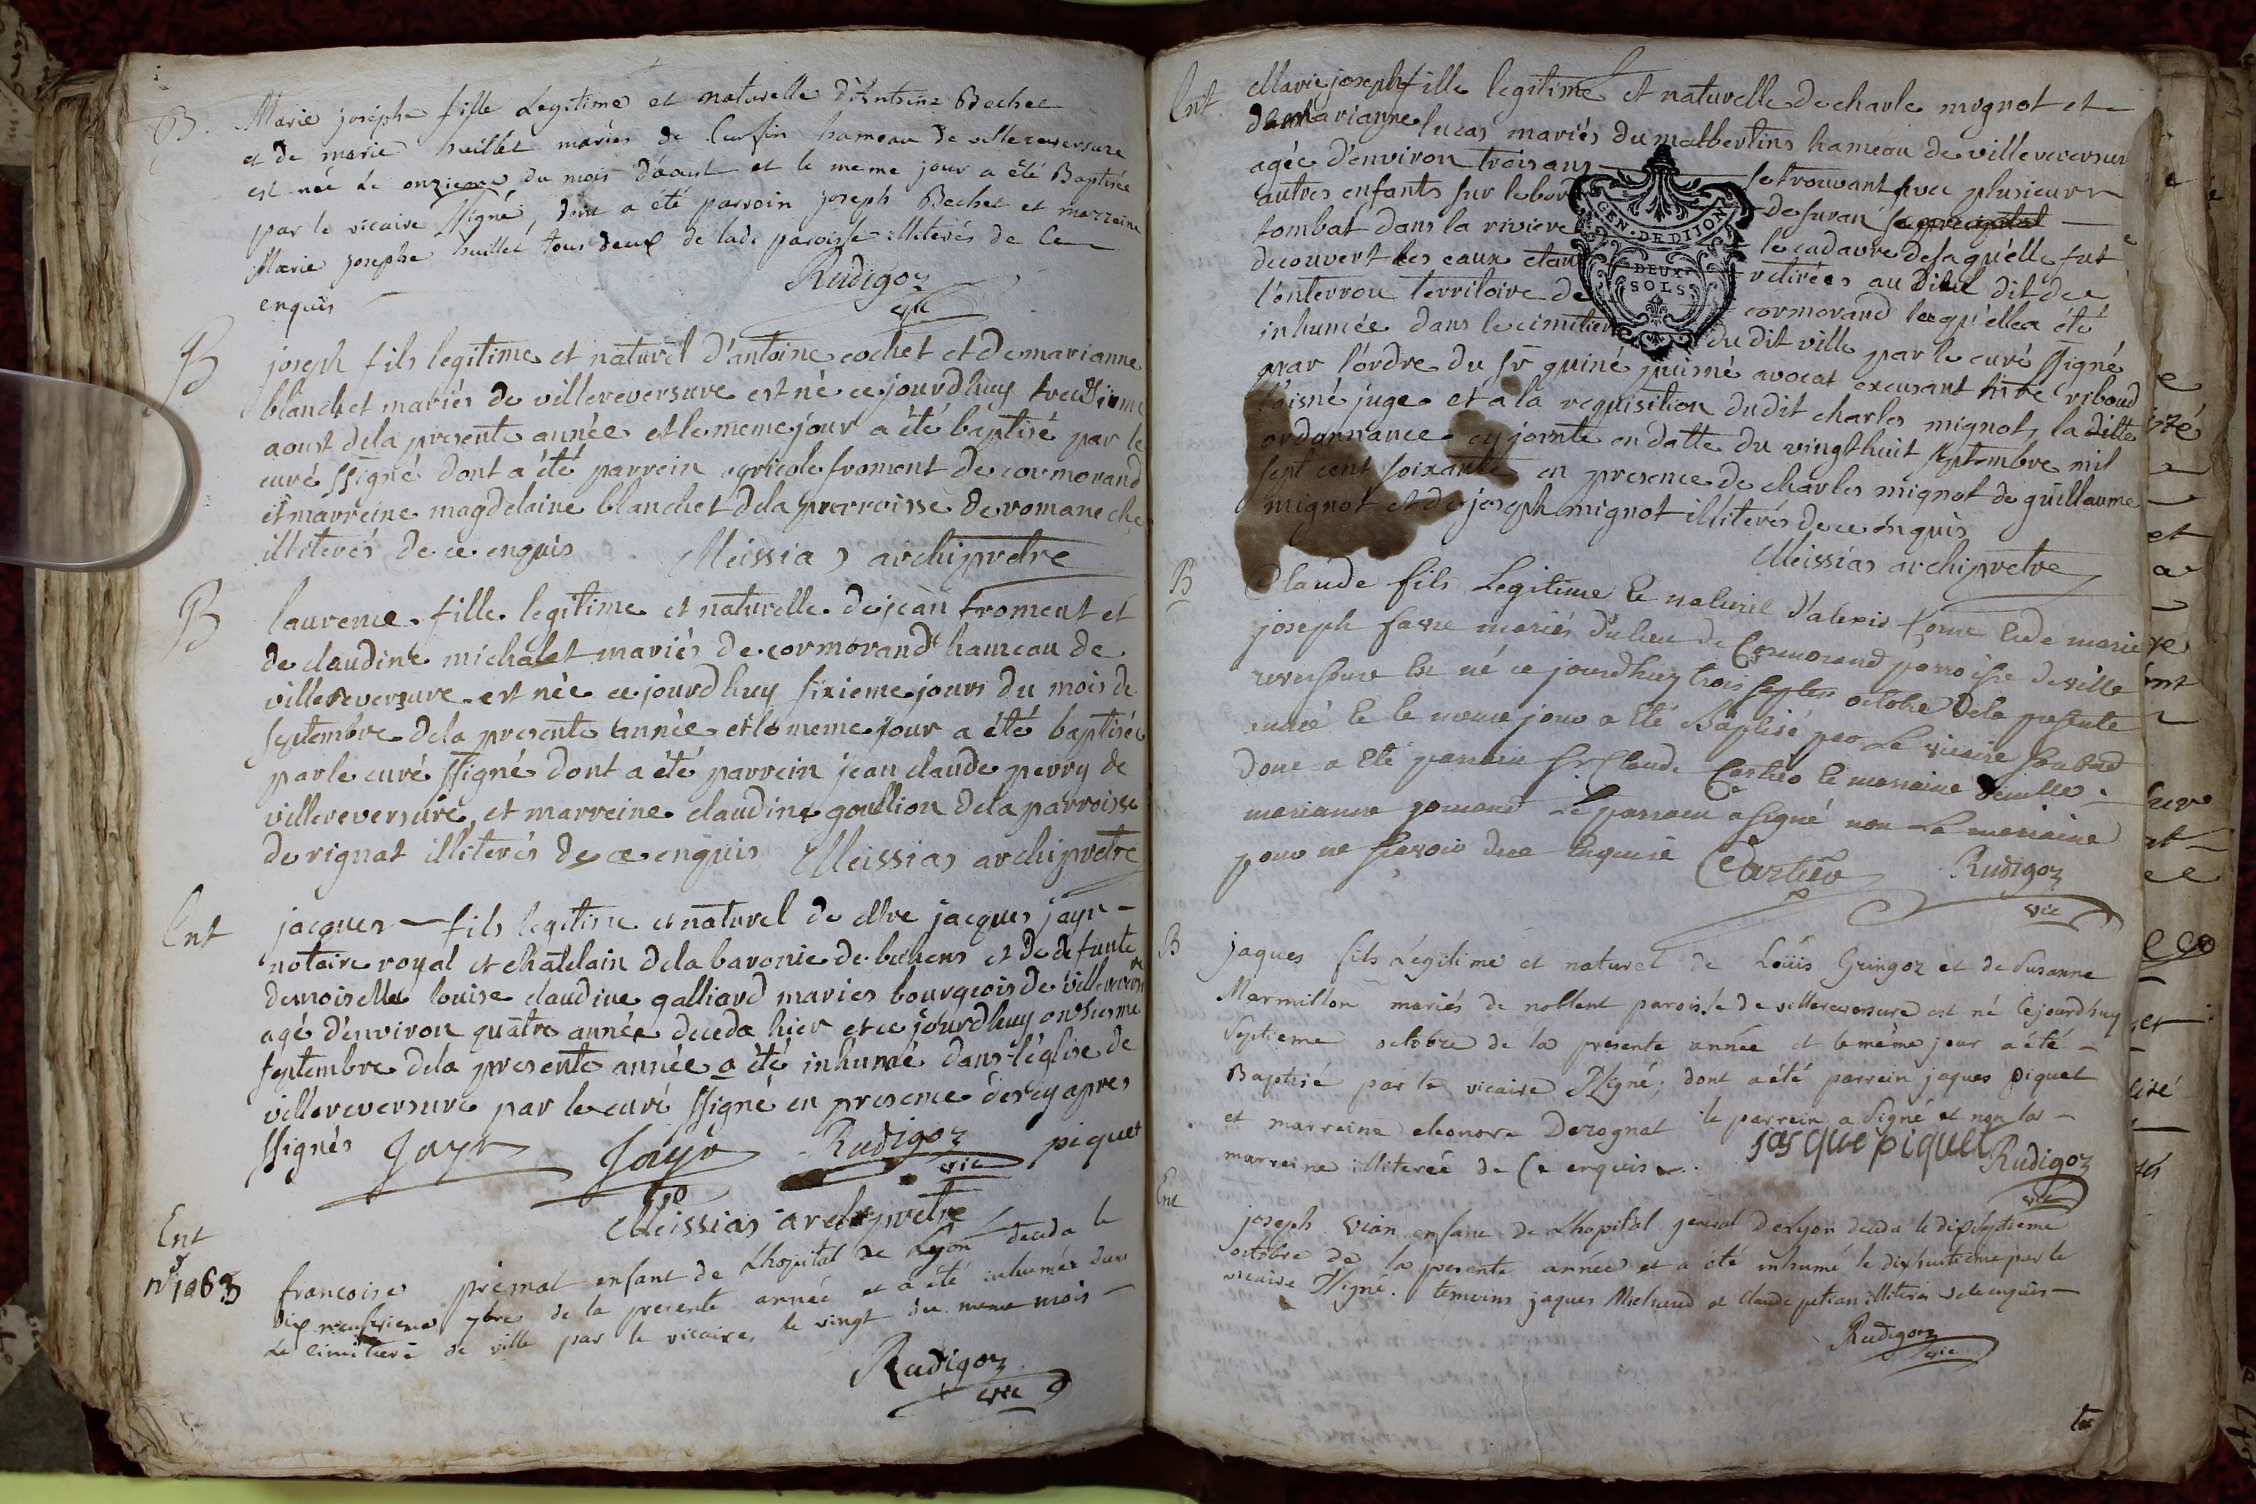 B. Marie josephe fille Legitime et naturelle d'Antoine Bechet
et de marie huillet mariés de Curfin hameau de villereversure
est née le onzieme du mois d'aoust et le meme jour a été Baptisée
par le vicaire ssigné, dont a été parrein joseph Bechet et marreine
Marie josephe huillet tous deux de lade paroisse illiterés de Ce
enquis
Rudigoz
vic
B joseph fils legitime et naturel d'antoine cochet et de marianne
blanchet mariés de villereversure est né ce jourdhuy treizieme
aoust dela presente année et le meme jour a été baptisé par le
curé ssigné dont a été parrein agricole froment de cormorand
et marreine magdelaine blanchet dela parroisse de romaneche
illiterés de ce enquis Meissias archipretre
B laurence fille legitime et naturelle de jean froment et
de claudine michalet mariés de cormorand hameau de
villereversure est née ce jourdhuy sixieme jours du mois de
septembre dela presente année et le meme jour a été baptisée
par le curé ssigné dont a été parrein jean claude perry de
villereversure, et marreine claudine goullion dela parroisse
de rignat illiterés de ce enquis Meissias archipretre
Ent jacques fils legitime et naturel de Mre jacques jayr
notaire royal et chatelain dela baronie de bohens et de defunte
demoiselle louise claudine galliard maries bourgeois de villereversure
agé d'environ quatre année deceda hier et ce jourdhuy onsieme
septembre dela presente année a été inhumé dans l'église de
villereversure par le curé ssigné en presence des cy apres
ssignés Jayr Jayr Rudigoz piquet
vic
Meissias archipretre
Ent
no 1063
francoise prémat enfant de Lhopital de Lyon deceda le
dix neufvieme 7bre de la presente année et a été inhumée dans
Le cimitiere de ville par le vicaire, le vingt du meme mois
Rudigoz
vic
Ent Marie joseph fille legitime et naturelle de charle mignot et
de marianne lucas mariés du malbertins hameau de villereversur
agée d'environ trois ans se trouvant avec plusieurs
autres enfants sur le bor de suran se precipitat
tombat dans la riviere le cadavre de laquelle fut
decouvert les eaux etant retirées au lieu dit de
l'enterrou territoire de cormorand lequ'elle a été
inhumée dans le cimitiere du dit ville par le curé ssigné
par l'ordre du sr quiné puisné avocat excusant mre riboud
l'aisné juge et a la requisition dudit charles mignot, la ditte
ordonnance cy jointe en datte du vingt huit septembre mil
sept cent soixante en presence de charles mignot de guillaume
mignot et de joseph mignot illiterés de ce enquis
Meissias archipretre
B Claude fils Legitime et naturel d'alexis Come et de marie
joseph favre mariés du lieu de Cormorand parroisse de ville
reversure est né ce jourdhuy trois septem octobre dela presente
année et le meme jour a été Baptisé par Le vicaire
dont a été parrain sr Claude Cartier et marraine
marianne Le parrain a signé non La marraine
pour ne sçavoir dece enquise Cartier Rudigoz
vic
B jaques fils Légitime et naturel de Loüis Gringoz et de Susanne
Marmillon mariés de noblent paroisse de villereversure est né Cejourdhuy
Septieme octobre de la presente année et le même jour a été
Baptisé par le vicaire ssigné; dont a été parrein jaques piquet
et marreine eleonore Derognat le parrein a Signé et non la
marreine illiterée de Ce enquise. jasque piquet Rudigoz
vic
Ent joseph Vian enfant de Lhopital general de Lyon deceda le dixseptieme
octobre de la presente année et a été inhumé le dixhuitieme par le
vicaire ssigné. temoins jaques Michaud et claude petian illiterés de ce enquis
Rudigoz
vic
GEN. DE DIJON
DEUX
SOLS